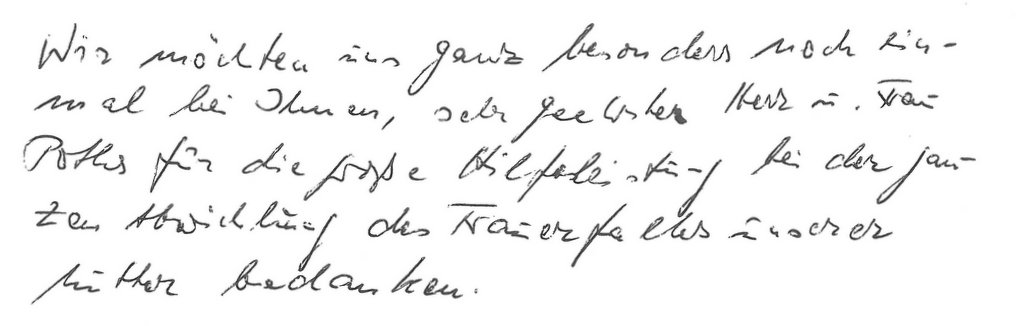 Wir möchten uns ganz besonders noch ein-
mal bei Ihnen, sehr geehrter Herr u. Frau
Poths für die große Hilfeleistung bei der gan-
zen Abwicklung des Trauerfalles unserer
Mutter bedanken.